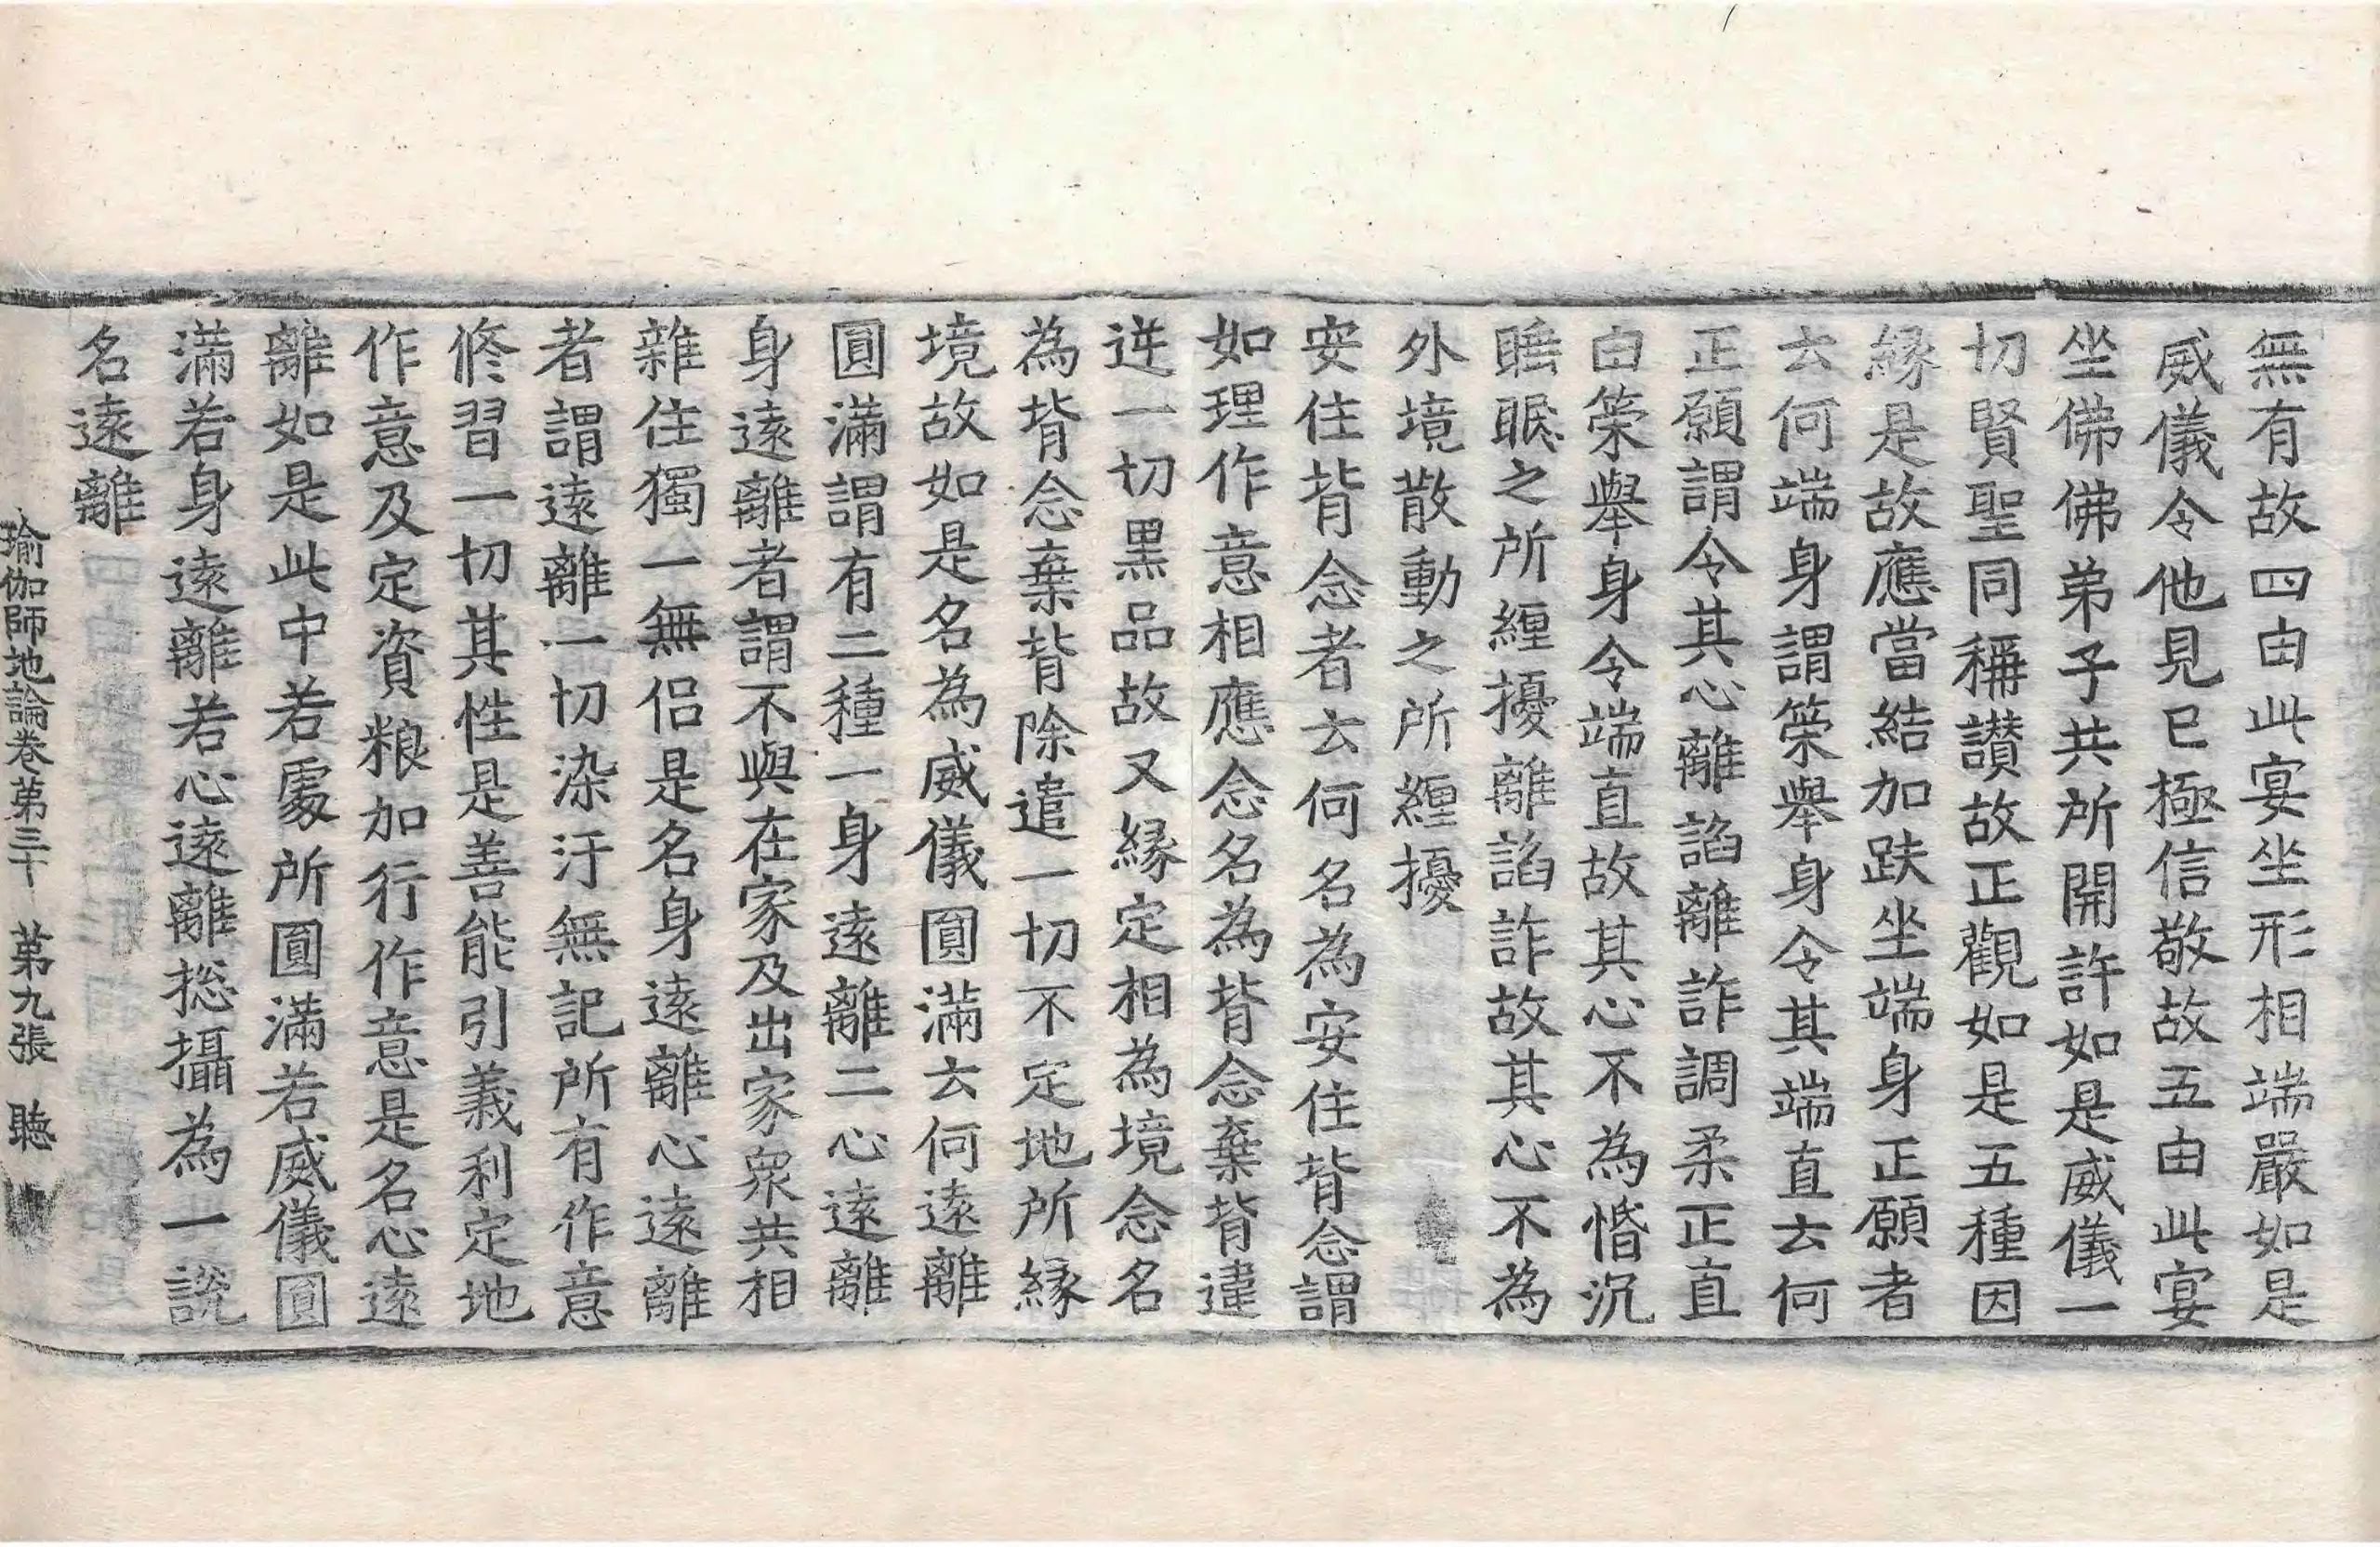 無有故四由此宴坐形相端嚴如是
威儀令他見已極信敬故五由此宴
坐佛佛弟子共所開許如是威儀一
切賢聖同稱讃故正觀如是五種因
緣是故應當結加趺坐端身正願者
云何端身謂䇿舉身令其端直云何
正願謂令其心離諂離詐調柔正直
由䇿舉身令端直故其心不為惛沉
睡眠之所纏擾離諂詐故其心不為
外境散動之所纏擾
安住背念者云何名為安住背念謂
如理作意相應念名為背念棄背違
逆一切黑品故又緣定相為境念名
為背念棄背除遣一切不定地所緣
境故如是名為威儀圓滿云何遠離
圓滿謂有二種一身遠離二心遠離
身遠離者謂不與在家及出家眾共相
雜住獨一無侣是名身遠離心遠離
者謂遠離一切染汙無記所有作意
修習一切其性是善能引義利定地
作意及定資粮加行作意是名心遠
離如是此中若處所圓滿若威儀圓
滿若身遠離若心遠離揔攝為一說
名遠離
瑜伽師地論卷第三十 第九張 聽